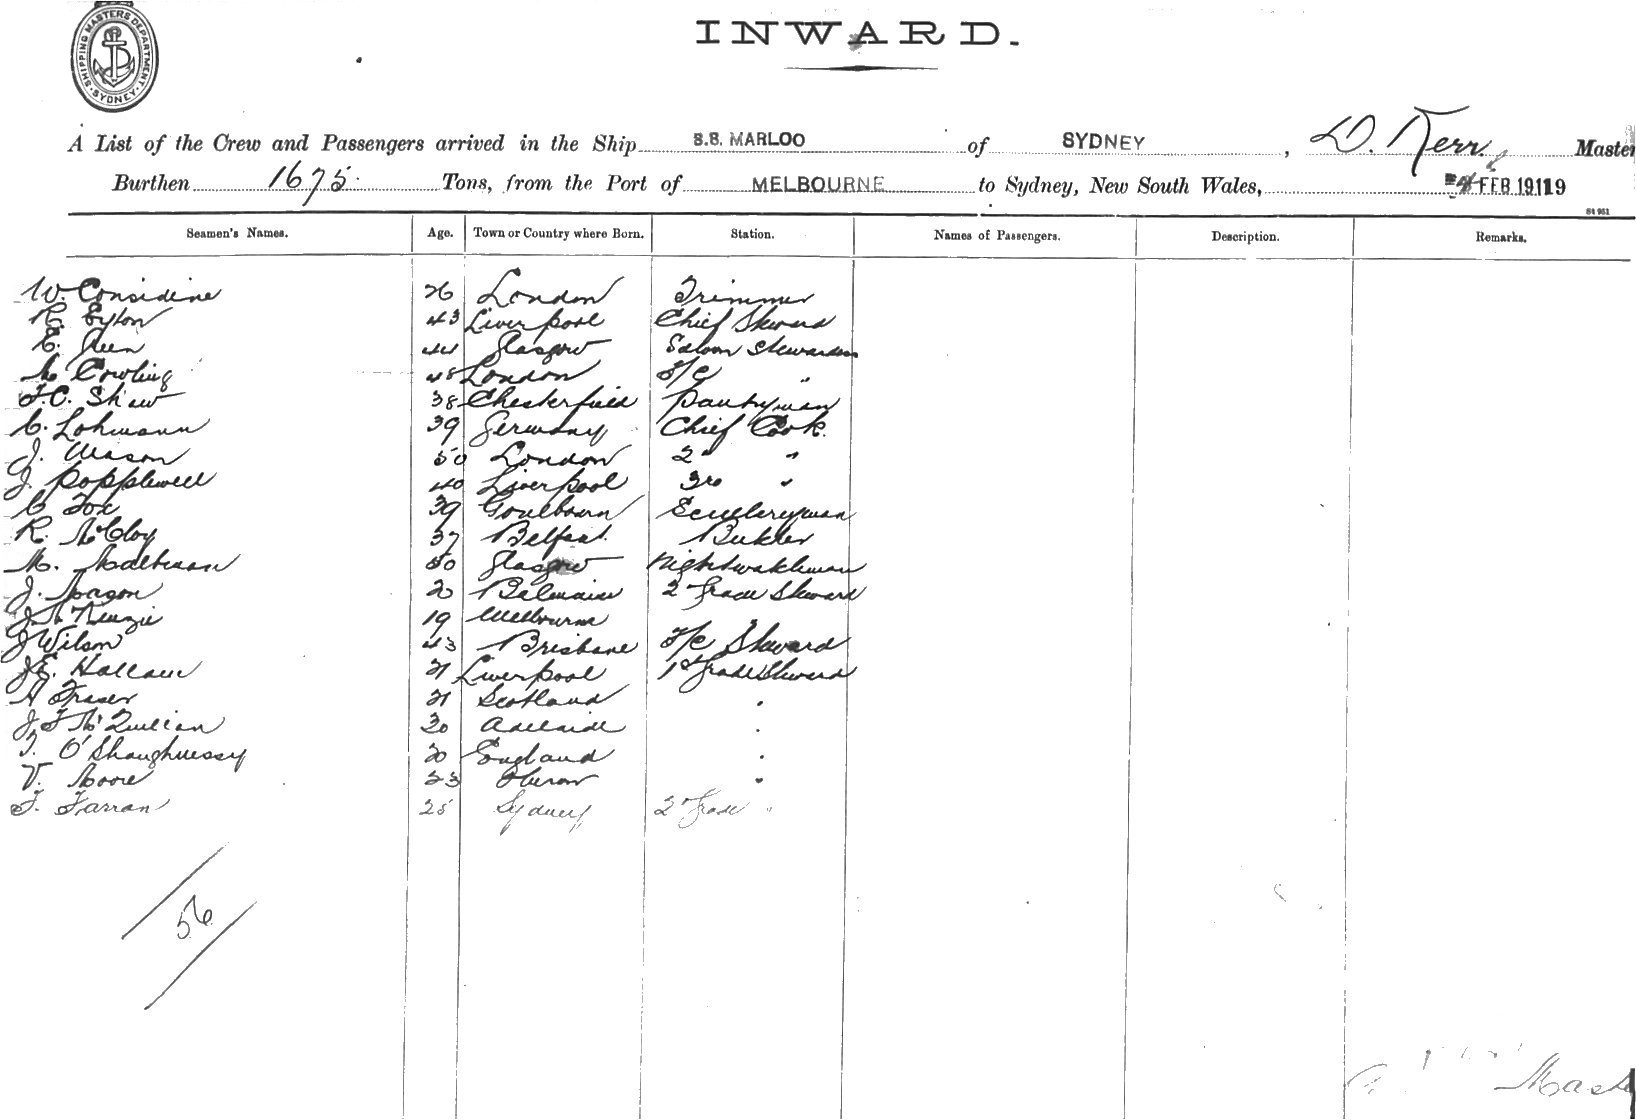 SHIPPING MASTERS DEPARTMENT. SYDNEY
INWARD.
A List of the Crew and Passengers arrived in the Ship S.S. MARLOO of SYDNEY, D. Kerr Master
Burthen 1675 Tons, from the Port of MELBOURNE to Sydney, New South Wales, FEB 1911
St 951
Seamen's Names. Age. Town or Country where Born. Station. Names of Passengers. Description. Remarks.
W. Considine 26 London Trimmer
R Eyton 43 Liverpool Chief Steward
44 Glasgow Saloon Stewardess
Cowling 48 London S/C "
F.C. Shaw 38 Chesterfield Pantryman
C. Lohmann 39 Germany Chief Cook.
J. Mason 50 London 2 "
J. Popplewell 40 Liverpool 3rd "
C Fox 39 Goulbourn Sculleryman
R. McCloy 37 Belfast Butcher
M. 50 Glasgow Nightwatchman
J. 20 Balmain 2 Grade Steward
J McKenzie 19 Melbourne
J Wilson 43 Brisbane F/C Steward
J.E. Hallam 21 Liverpool 1st Grade Steward
A Fraser 21 Scotland "
J F McQuillan 30 Adelaide "
T. O'Shaughnessy 20 England "
V. Moore 23 Oberon "
F. Farran 25 Sydney 2 Grade "
56
Master